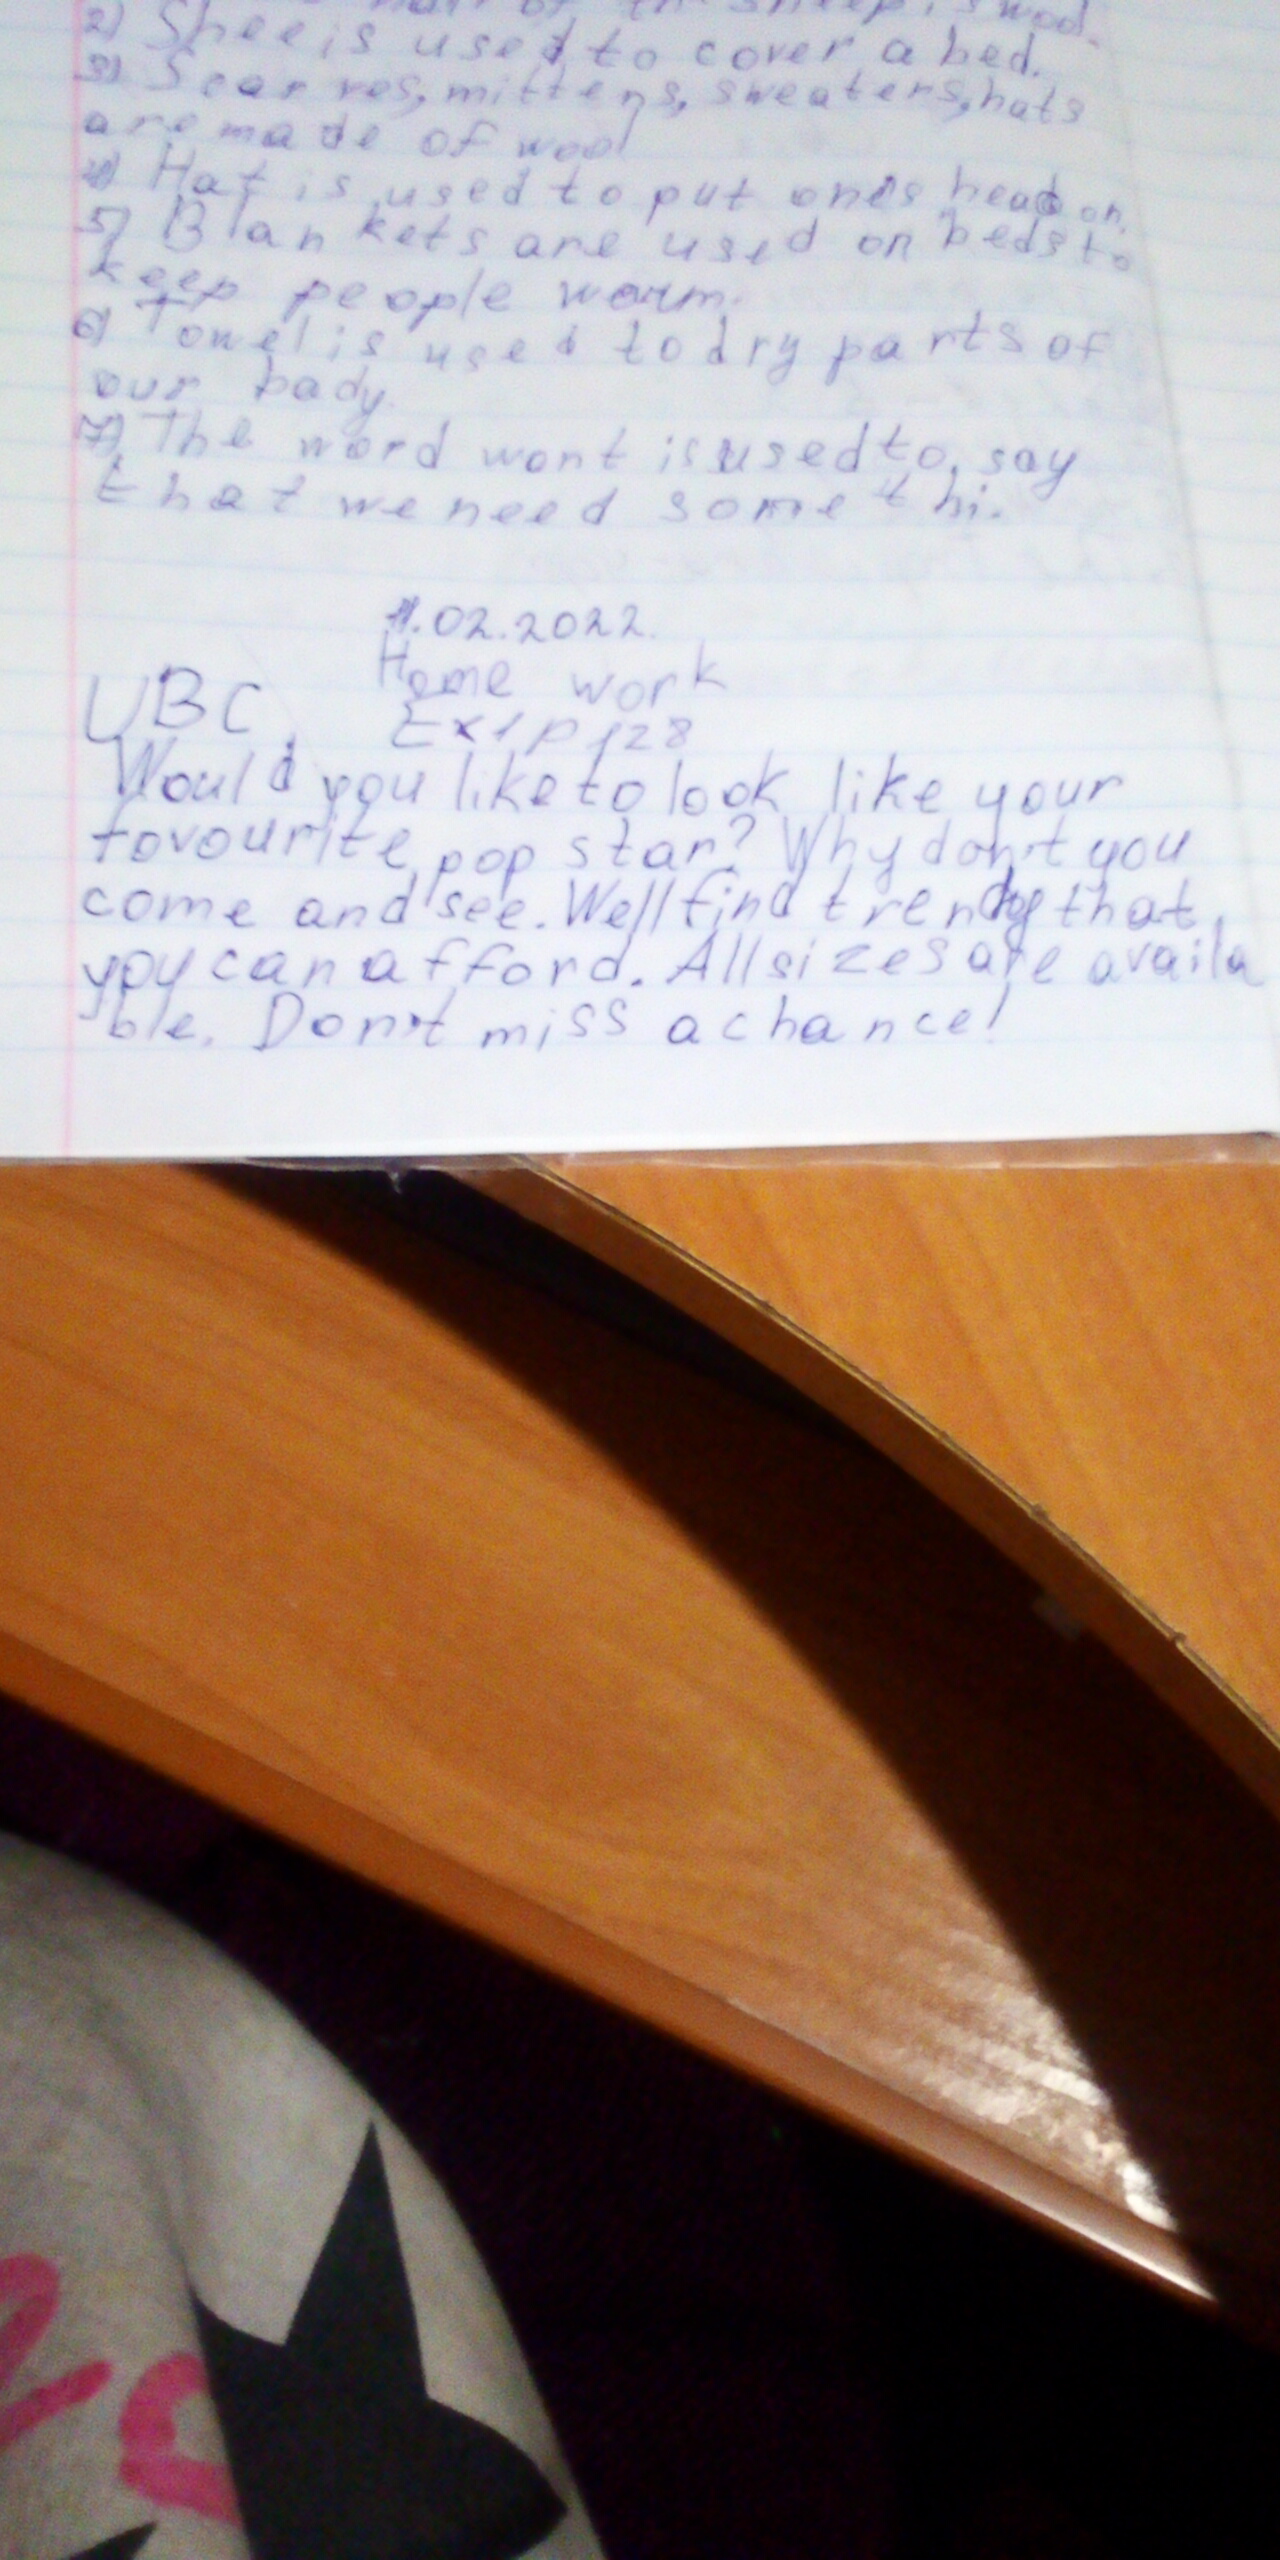 hair of the sheep is wool.
2) Shee is used to cover a bed.
3) Scarves, mittens, sweaters, hats
are made of wool
4) Hat is used to put ones head on.
5) Blankets are used on beds to
keep people worm.
6) Towel is used to dry parts of
our bady.
7) The word wont is used to, say
that we need some thi.
11.02.2022.
Home work
UBC. Ex 1 p 128
Would you like to look like your
fovourite pop star? Why don't you
come and see. We'll find trendy that
yoy can afford. All sizes are availa
ble. Don't miss a chance!